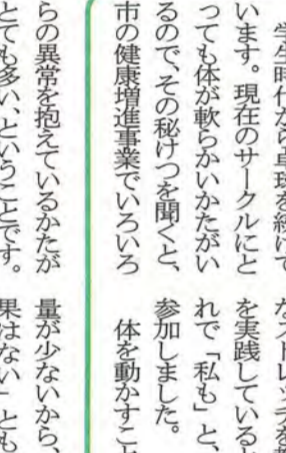 学生時代から卓球を続けて
います。現在のサークルにと
っても体が軟らかいかたがい
るので、その秘けつを聞くと、
市の健康増進事業でいろいろ
なストレッチを教
を実践していると
れで「私も」と、
参加しました。
体を動かすこと
らの異常を抱えているかたが
とても多い、ということです。
量が少ないから、
果はない」とも